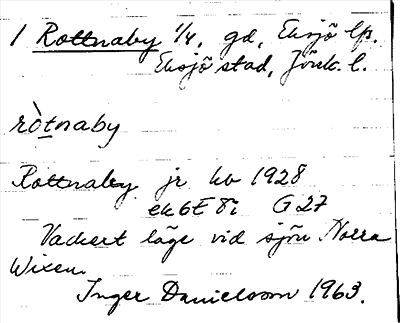 1 Rottnaby 1/4, gd, Eksjö lfs.
Eksjö stad, Jönk. l.
ròtnaby
Rottnaby jr hb 1928
ek 6E 8i G 27
Vackert läge vid sjön Norra
Wixen.
Inger Danielsson 1963.